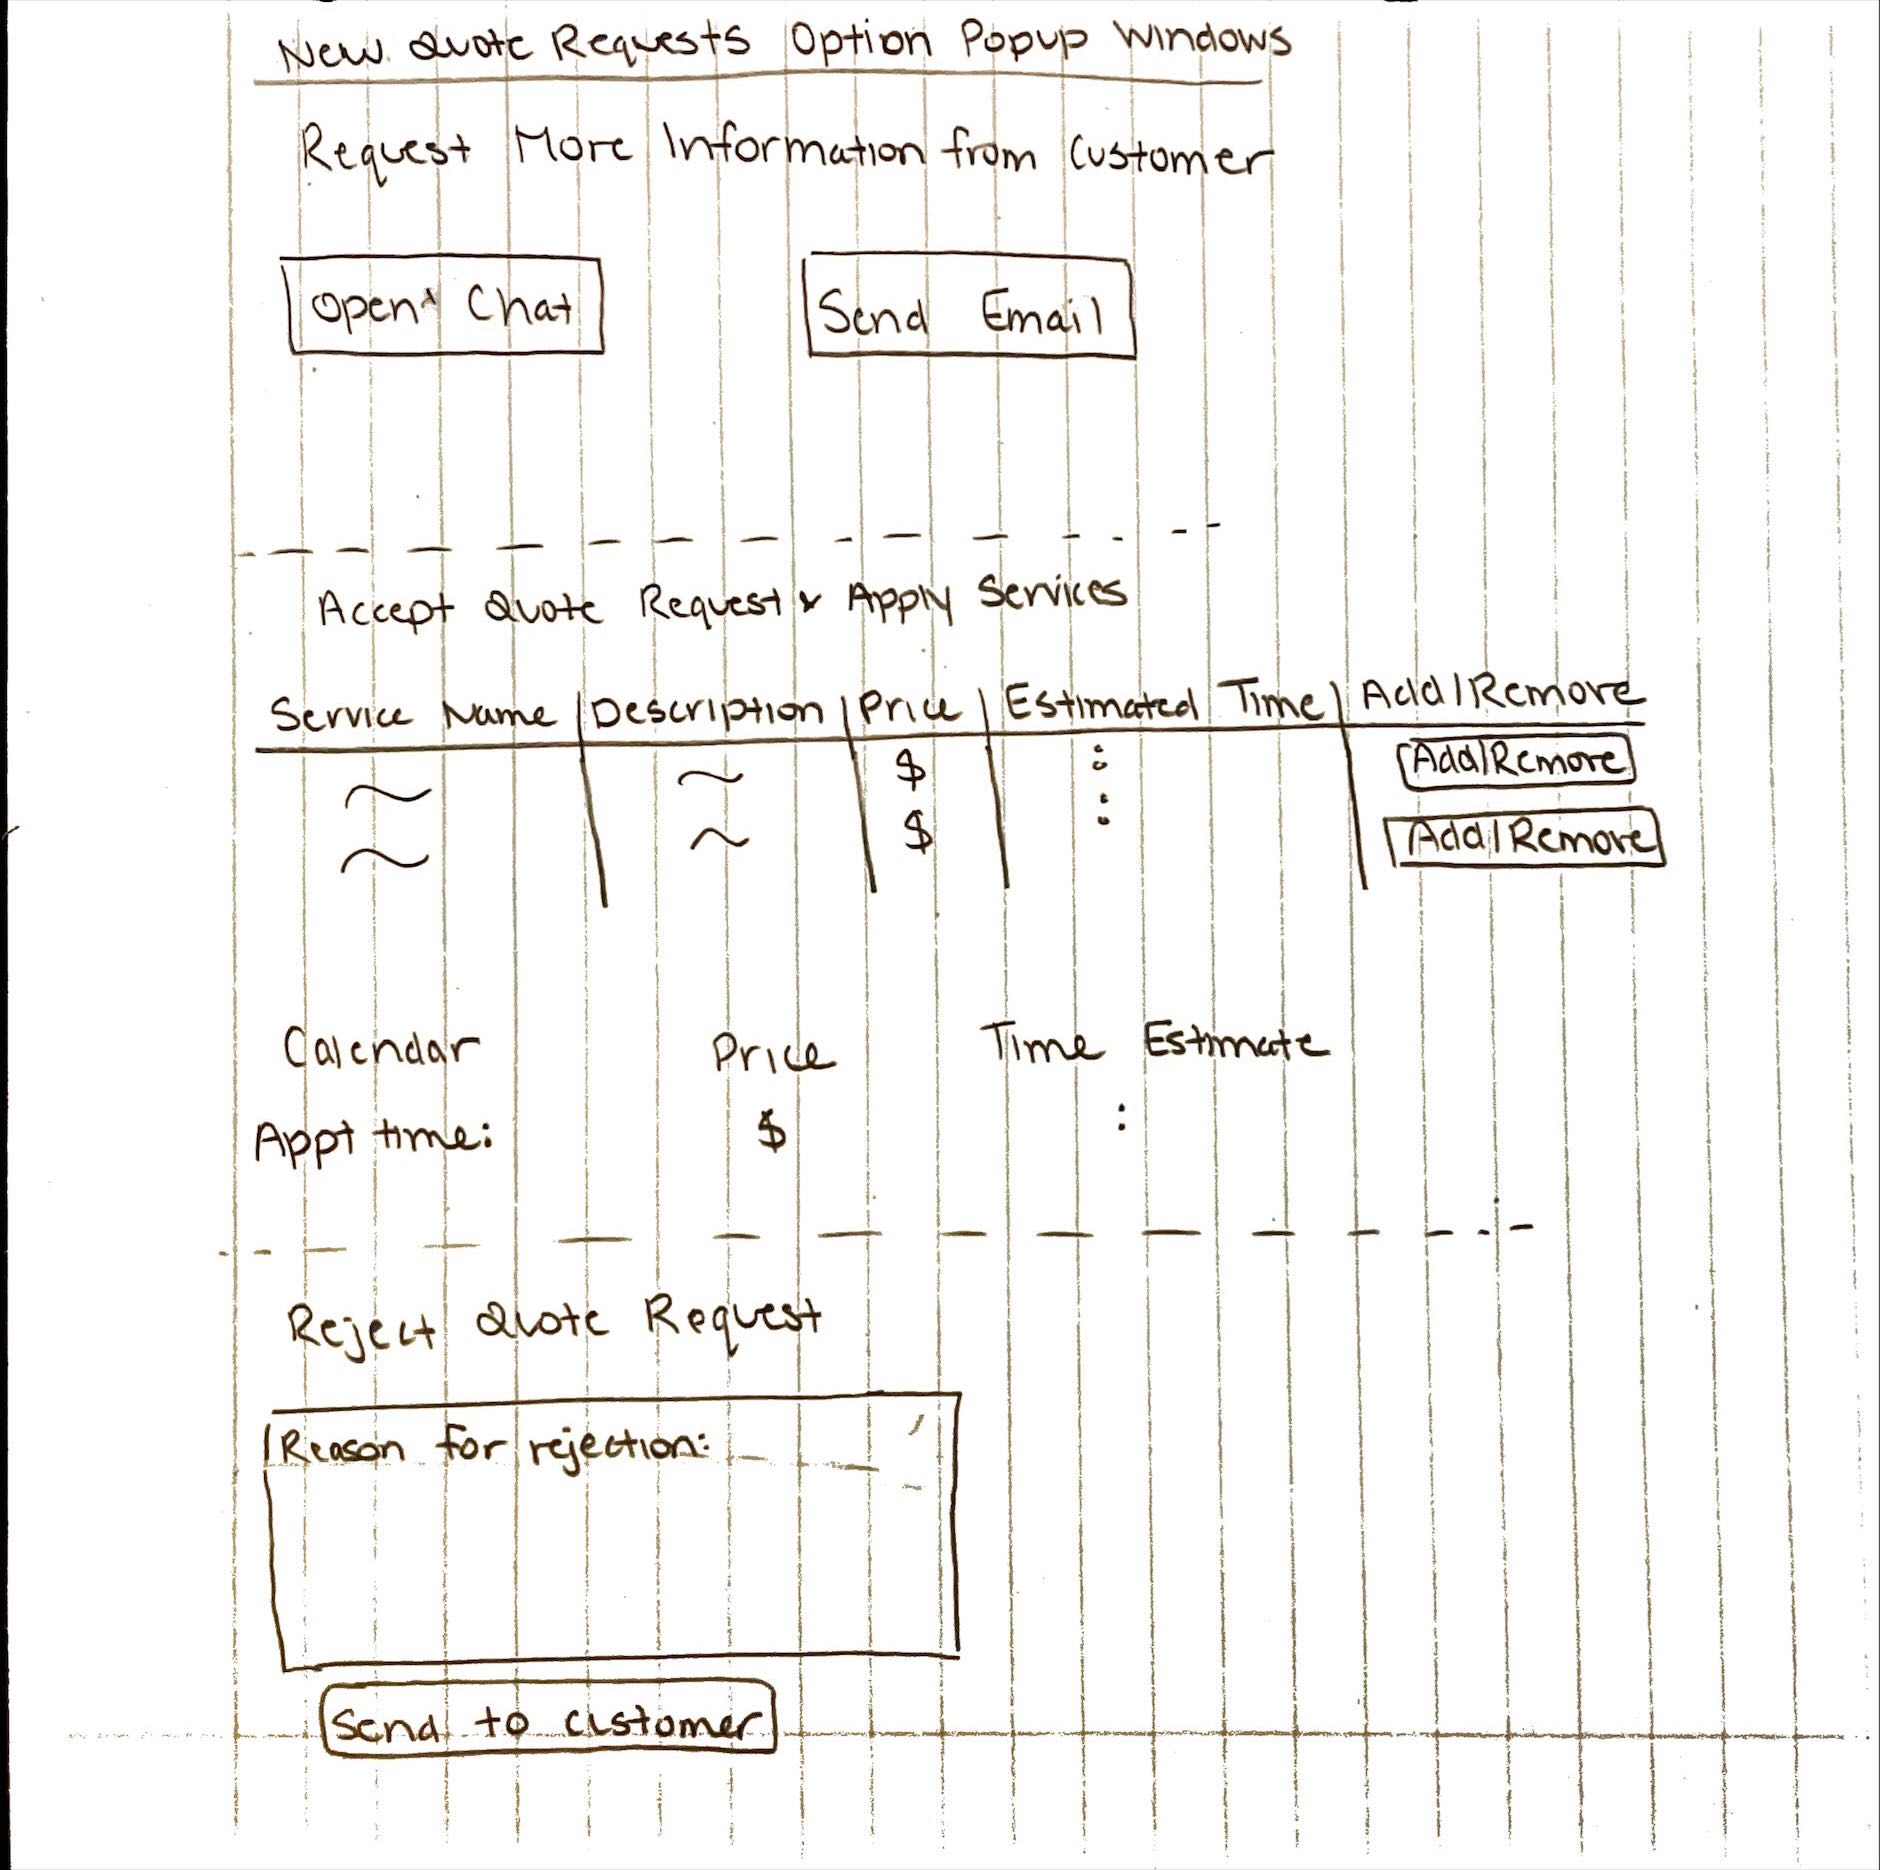 New Quote Requests Option Popup Windows
Request More Information from Customer
Open Chat
Send Email
Accept Quote Request & Apply Services
Service Name | Description | Price | Estimated Time | Add/Remove
~ ~ $ : Add/Remove
~ ~ $ : Add/Remove
Calendar Price Time Estimate
Appt time: $ :
Reject Quote Request
Reason for rejection:
Send to customer